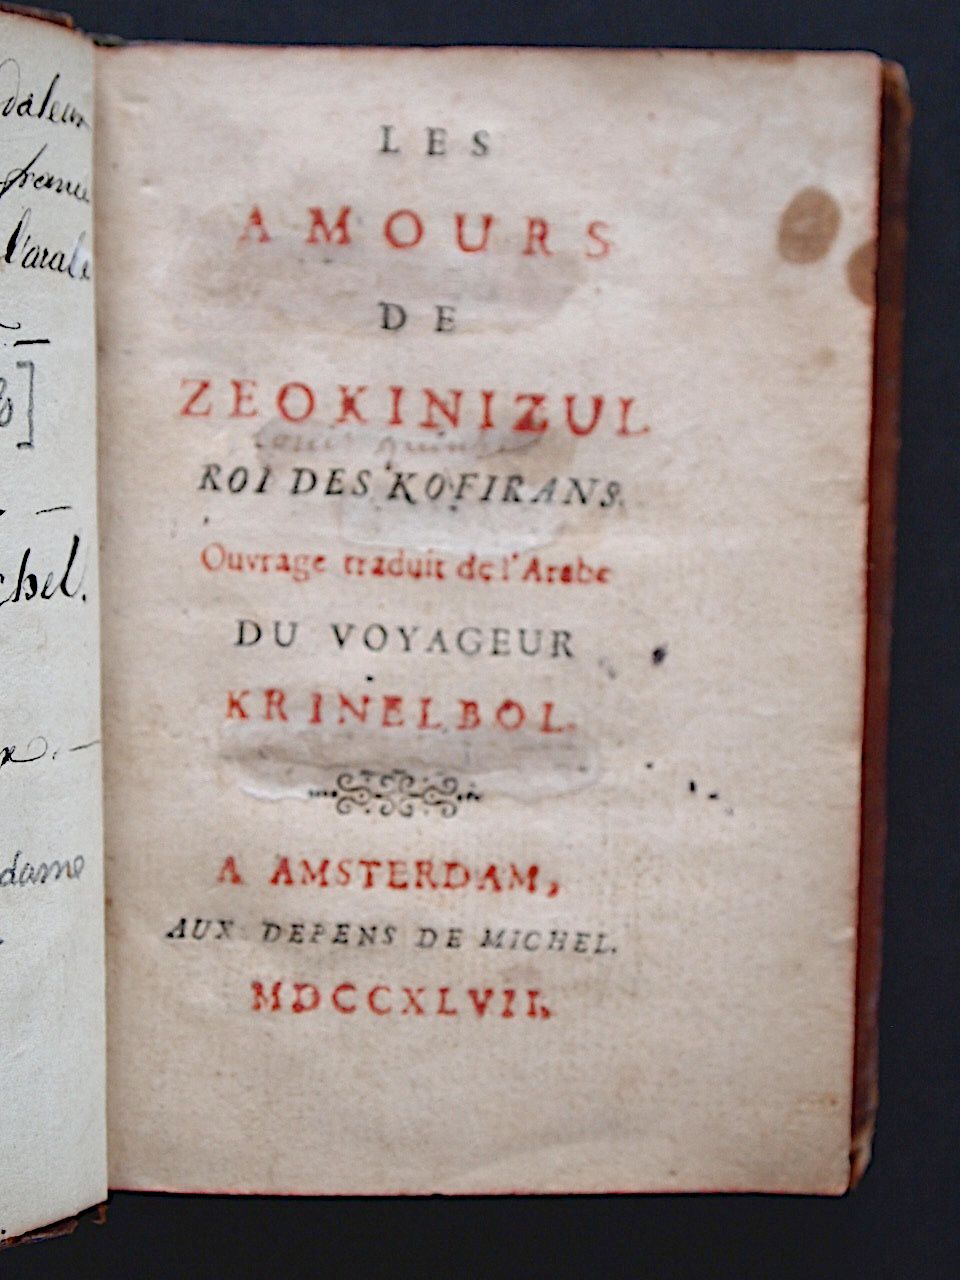 france
l'arabe
chel.
dame
LES
AMOURS
DE
ZEOKINIZUL
Louis quinze
ROI DES KOFIRANS.
Ouvrage traduit de l'Arabe
DU VOYAGEUR
KRINELBOL.
A AMSTERDAM,
AUX DEPENS DE MICHEL.
MDCCXLVII.